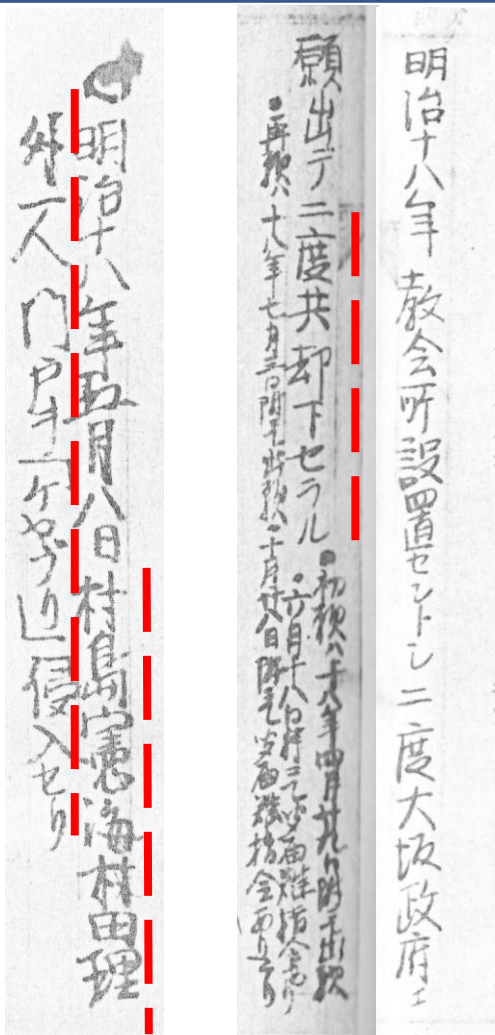 明治十八年 教会所設置セントシ二度大坂政府エ
願出デ二度共却下セラル
●初願ハ十八年四月廿九日附ニテ出願
●六月十八日附ニテ 指令あり
●再願ハ十八年七月三日附ニテ出願●十月廿八日附ニテ 指令あり
明治十八年五月八日村島憲海村田理
外一人門戸ヲ二ケ所ヤブリ 侵入セリ